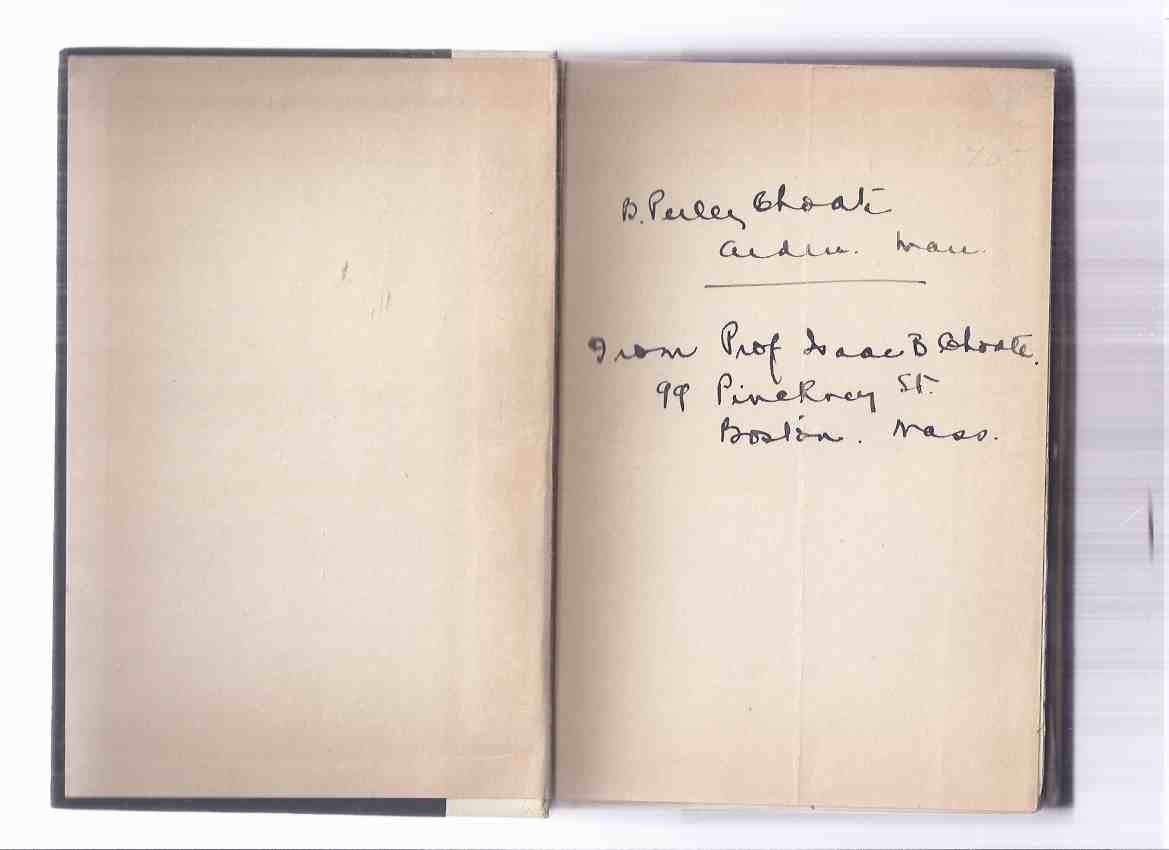 B. Perley Choate
Arden. Man.
From Prof Isaac B Choate.
99 Pinckney St.
Boston. Mass.